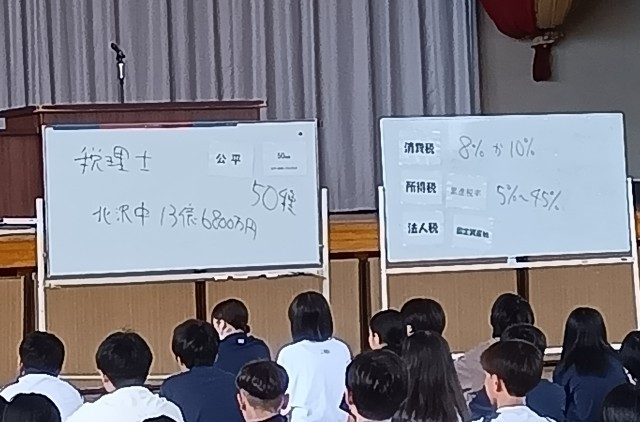 税理士 公平
50種
北沢中 13億6800万円
消費税 8%か10%
所得税 累進税率 5%～45%
法人税 固定資産税